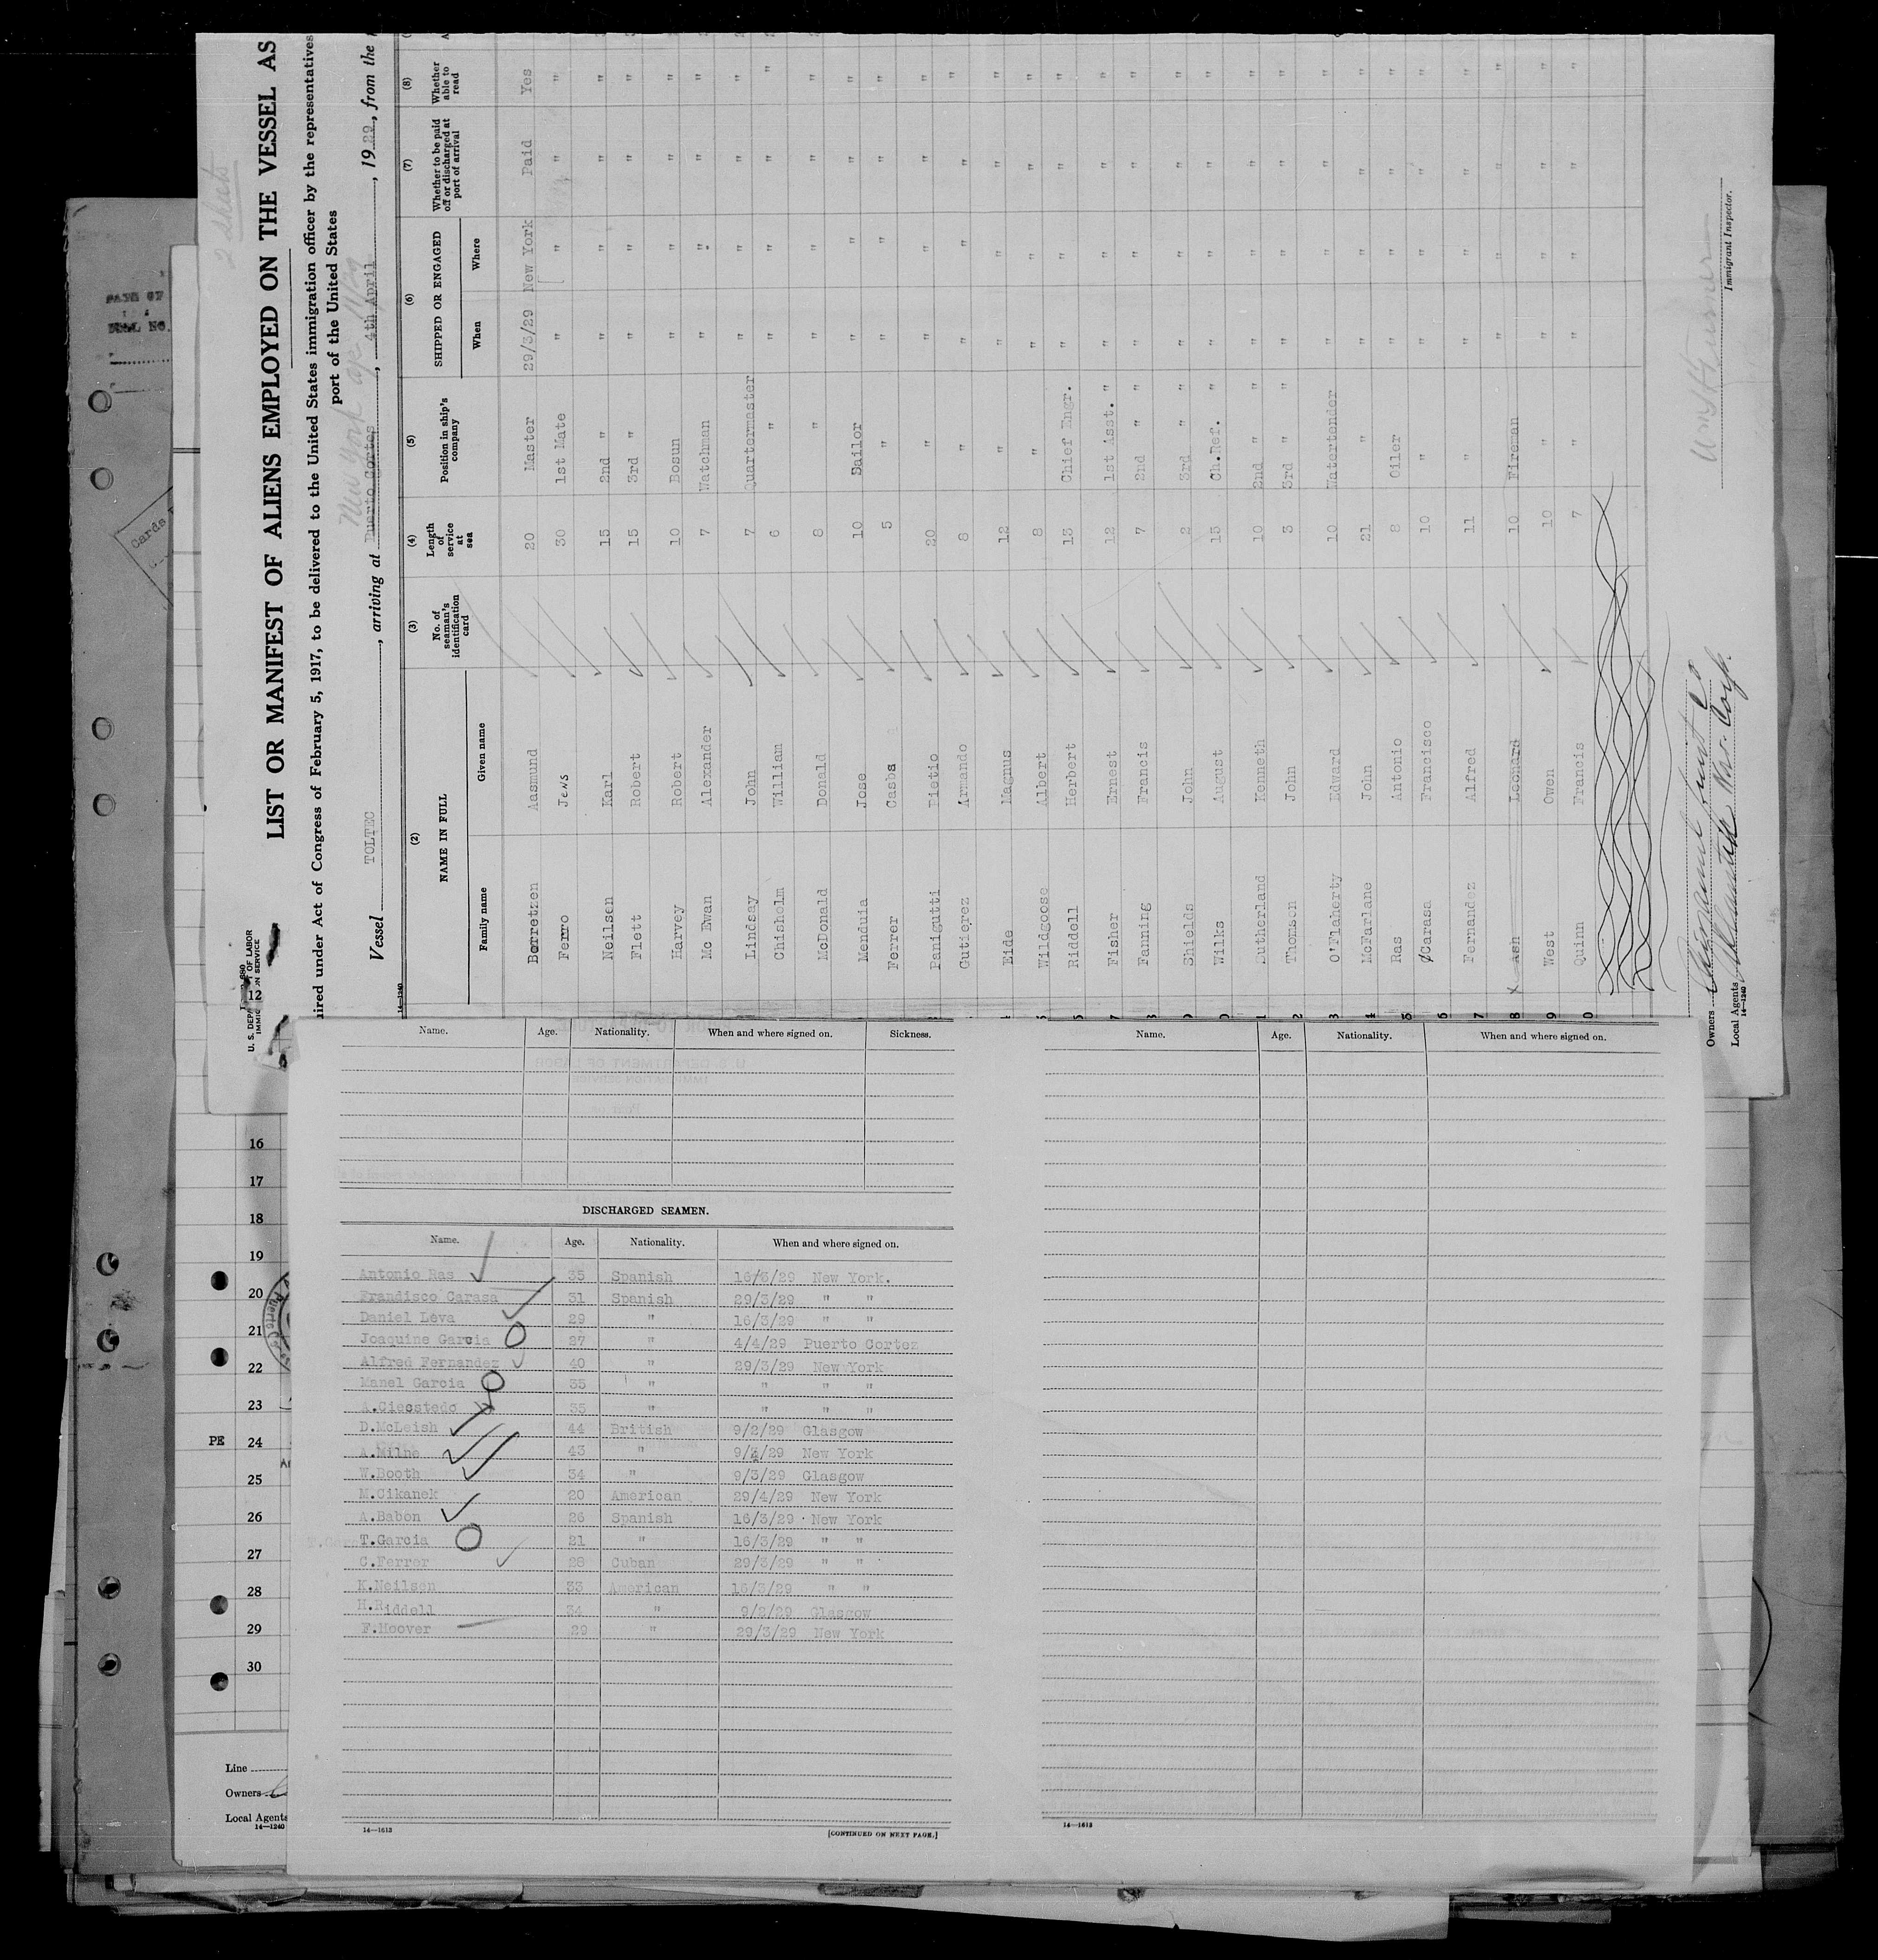 2 sheets
LIST OR MANIFEST OF ALIENS EMPLOYED ON THE VESSEL AS
uired under Act of Congress of February 5, 1917, to be delivered to the United States immigration officer by the representatives
port of the United States
New York
Vessel TOLTEC, arriving at Puerto Cortes, 4th April, 1929, from the
U. S. DEPA OF LABOR
12
(2) (3) (4) (5) (6) (7) (8)
NAME IN FULL No. of seaman's identification card Length of service at sea Position in ship's company SHIPPED OR ENGAGED Whether to be paid off or discharged at port of arrival Whether able to read
Family name Given name When Where
Borretzen Aasmund 20 Master 29/3/29 New York Paid Yes
Ferro Jens 30 1st Mate " " " "
Neilsen Karl 15 2nd " " " " "
Flett Robert 15 3rd " " " " "
Harvey Robert 10 Bosun " " " "
Mc Ewan Alexander 7 Watchman " " " "
Lindsay John 7 Quartermaster " " " "
Chisholm William 6 " " " " "
McDonald Donald 8 " " " " "
Menduia Jose 10 Sailor " " " "
Ferrer Casba 5 " " " " "
Panigutti Pietio 20 " " " " "
Gutierez Armando 8 " " " " "
Eide Magnus 12 " " " " "
Wildgoose Albert 8 " " " " "
Riddell Herbert 13 Chief Engr. " " " "
Fisher Ernest 12 1st Asst. " " " " "
Fanning Francis 7 2nd " " " " " "
Shields John 2 3rd " " " " " "
Wilks August 15 Ch.Ref. " " " " "
Sutherland Kenneth 10 2nd " " " " " "
Thomson John 3 3rd " " " " " "
O'Flaherty Edward 10 Watertender " " " "
McFarlane John 21 " " " " "
Ras Antonio 8 Oiler " " " "
Carasa Francisco 10 " " " " "
Fernandez Alfred 11 " " " " "
x Ash Leonard 10 Fireman " " " "
West Owen 10 " " " " "
Quinn Francis 7 " " " " "
Owners
Local Agents
14—1240
Immigrant Inspector.
Cards
16
17
18
19
20
21
22
23
PE 24
25
26
27
28
29
30
Line
Owners
Local Agents
14—1240
Name. Age. Nationality. When and where signed on. Sickness.
DISCHARGED SEAMEN.
Name. Age. Nationality. When and where signed on.
Antonio Ras 35 Spanish 16/3/29 New York.
Frandisco Carasa 31 Spanish 29/3/29 " "
Daniel Leva 29 " 16/3/29 " "
Joaquine Garcia 27 " 4/4/29 Puerto Cortez
Alfred Fernandez 40 " 29/3/29 New York
Manel Garcia 35 " " " "
A.Ciecstedo 35 " " " "
D.McLeish 44 British 9/2/29 Glasgow
A.Milne 43 " 9/4/29 New York
W.Booth 34 " 9/3/29 Glasgow
M.Cikanek 20 American 29/4/29 New York
A.Babon 26 Spanish 16/3/29 New York
T.Garcia 21 " 16/3/29 " "
C.Ferrer 28 Cuban 29/3/29 " "
K.Neilsen 33 American 16/3/29 " "
H.Riddell 34 " 9/2/29 Glasgow
F.Hoover 29 " 29/3/29 New York
14—1613
[CONTINUED ON NEXT PAGE.]
Name. Age. Nationality. When and where signed on.
14—1613